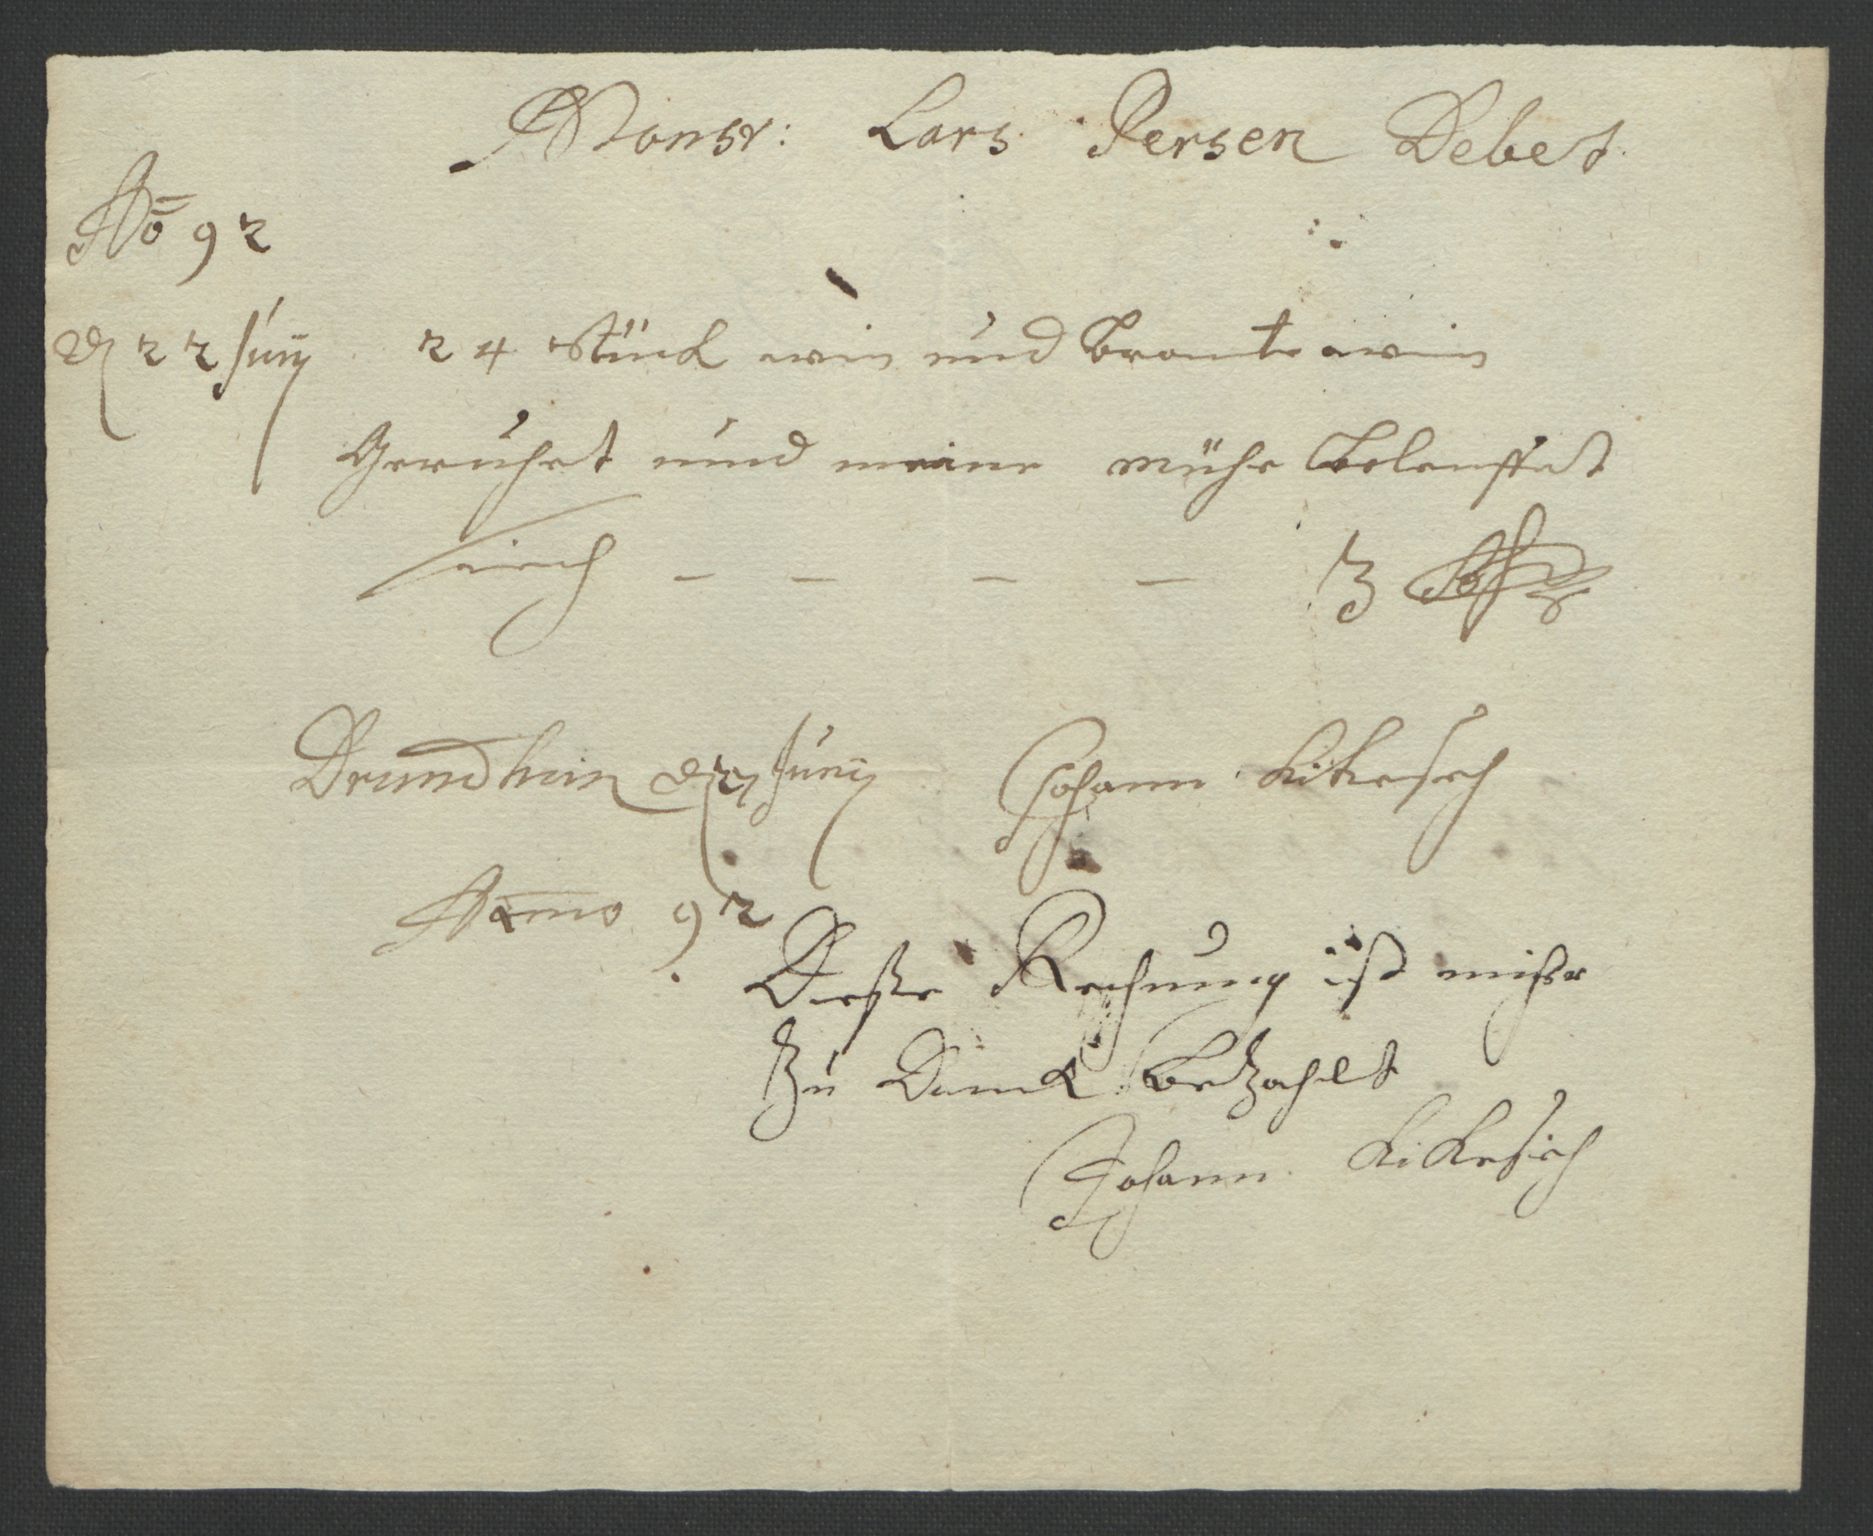 Monsr: Lars Persen Debet
Ao 92
d 22 Junij 24 Stück win und brante win
Geruhret und meine mühe belauffet
sich – – – – 3
Drundhein d 27 Junij Johann Kikesech
Anno 92
Diesse Rechnung ist mihr
Zu Danck betzahlt
Johann Kikesech